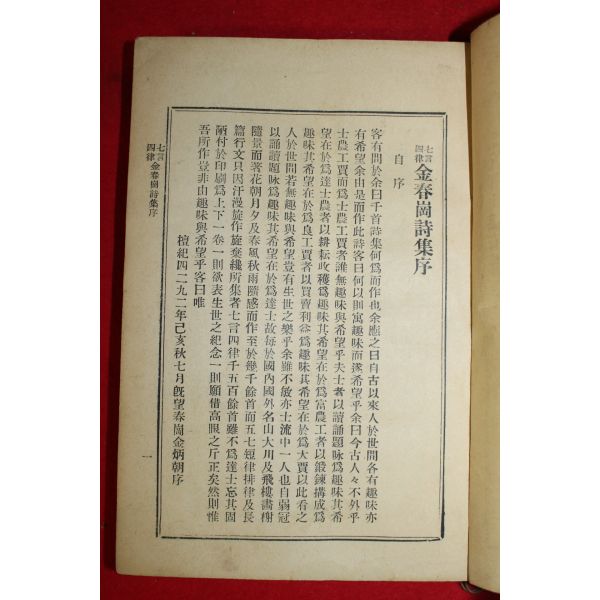 七言四律 金春崗詩集序
自序
客有問於余曰千首詩集何爲而作也余應之曰自古以來人於世間各有趣味亦
有希望余由是而作此詩客曰何以則寓趣味而遂希望乎余曰今古人々不外乎
士農工賈而爲士農工賈者誰無趣味與希望乎夫士者以讀誦題咏爲趣味其希
望在於爲達士農者以耕耘收穫爲趣味其希望在於爲富農工者以鍛鍊搆成爲
趣味其希望在於爲良工賈者以買賣利益爲趣味其希望在於爲大賈以此看之
人於世間若無趣味與希望豈有生世之樂乎余雖不敏亦士流中一人也自弱冠
以誦讀題咏爲趣味其希望在於爲達士故每於國內國外名山大川及飛樓畵榭
隨景而著花朝月夕及春風秋雨隨感而作至於幾千餘首而五七短律排律及長
篇行文只因汗漫旋作旋棄纔所集者七言四律千五百餘首雖不爲達士忘其固
陋付於印刷爲上下一卷一則欲表生世之紀念一則願借高眼之斤正矣然則惟
吾所作豈非由趣味與希望乎客曰唯
檀紀四二九二年己亥秋七月旣望春崗金炳朝序
七言四律 金春崗詩集序
一